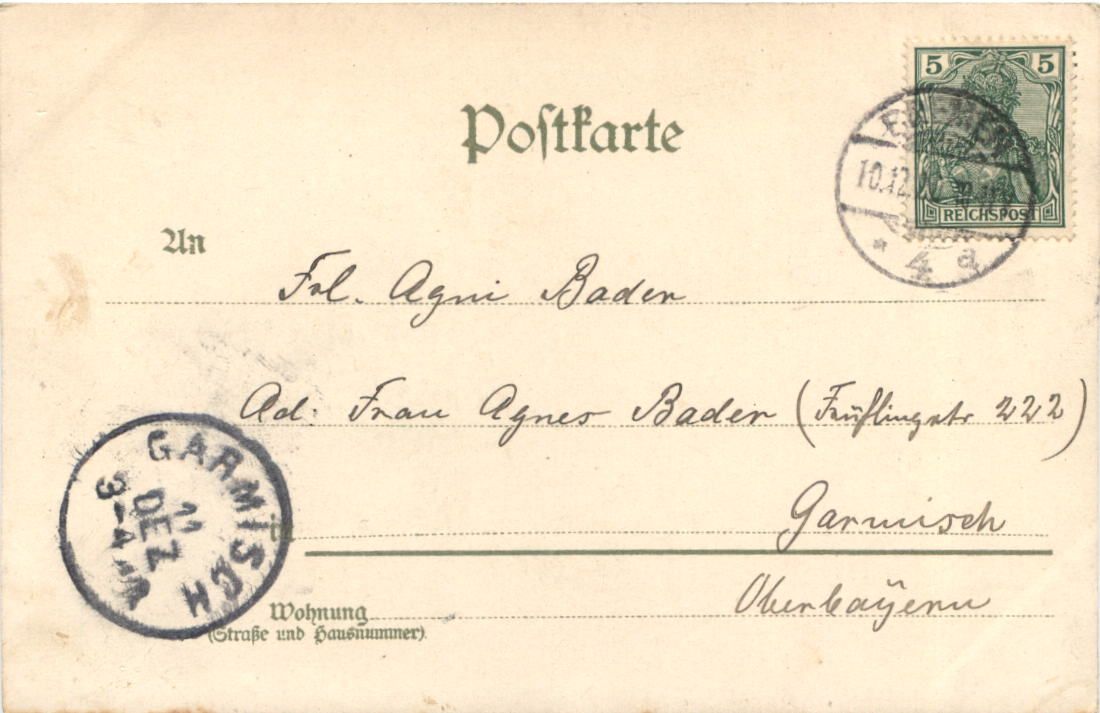 5 5
Postkarte
REICHSPOST
10.12.
* 4 a
An
Frl. Agni Bader
Ad. Frau Agnes Bader (Frühlingstr 222)
GARMISCH
11
DEZ
3-4
Garmisch
Oberbayern
Wohnung
(Straße und Hausnummer).